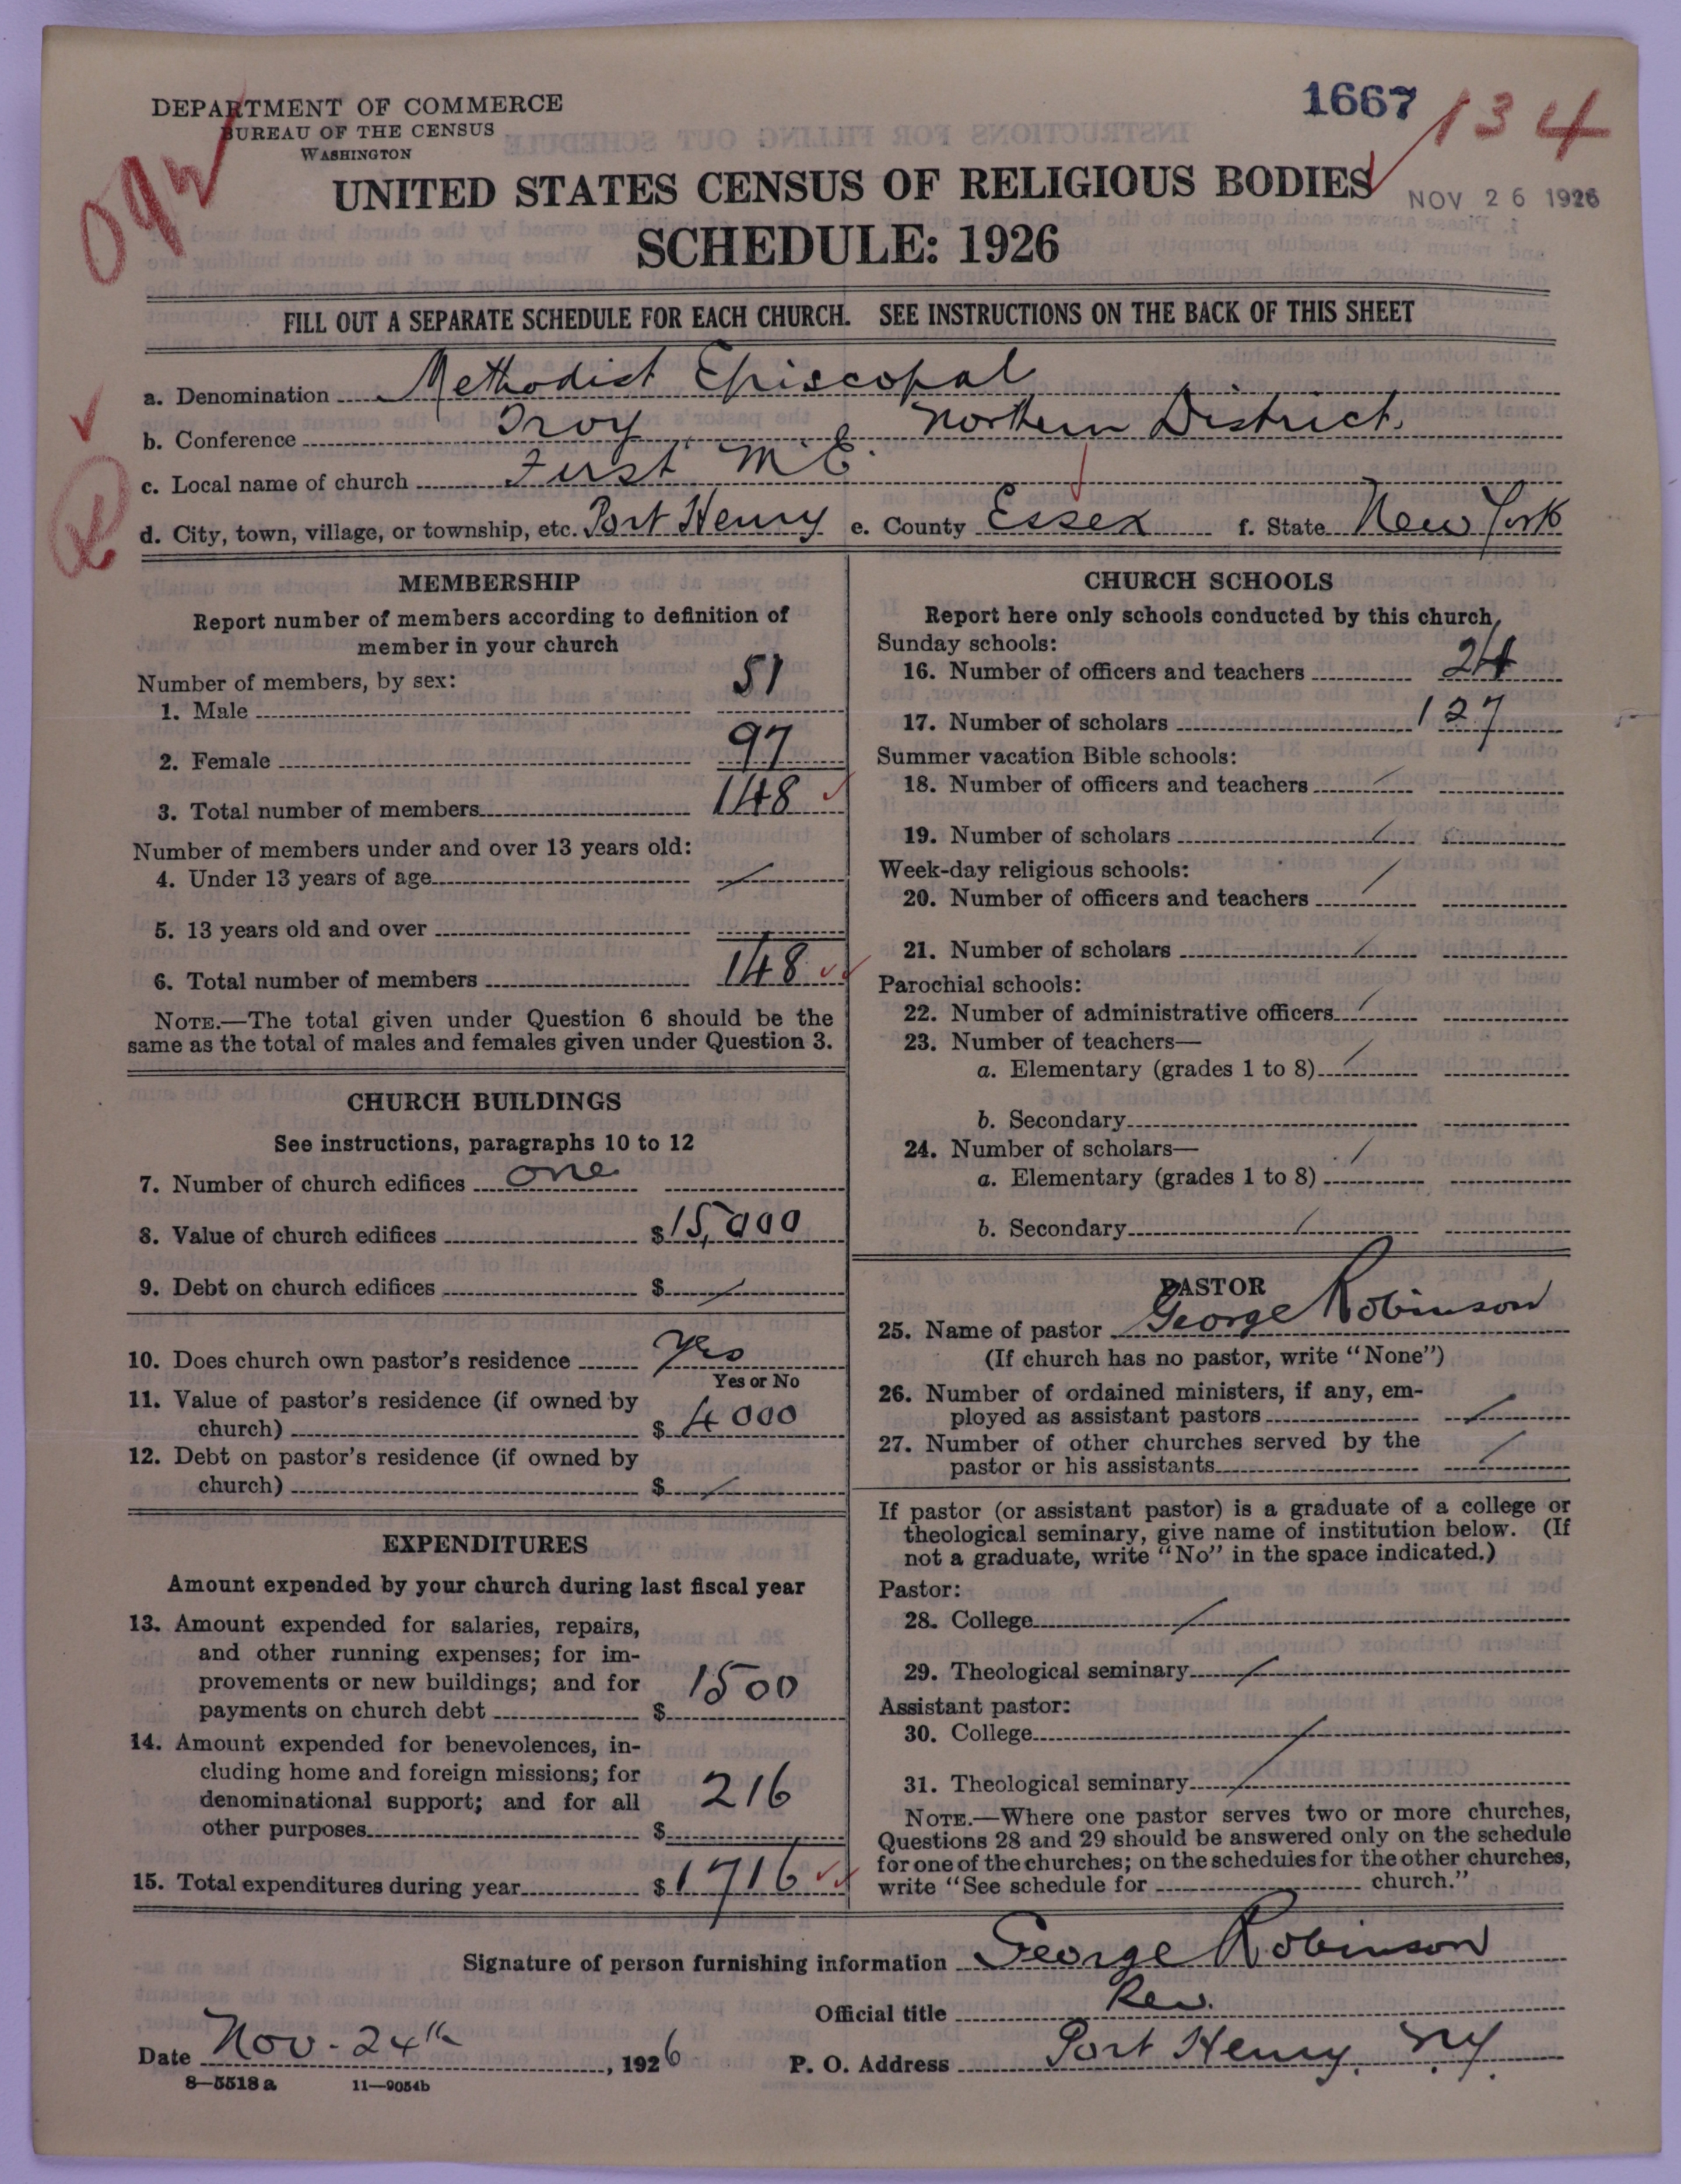 DEPARTMENT OF COMMERCE
BUREAU OF THE CENSUS
WASHINGTON
1667
134
NOV 26 1926
UNITED STATES CENSUS OF RELIGIOUS BODIES
SCHEDULE: 1926
FILL OUT A SEPARATE SCHEDULE FOR EACH CHURCH. SEE INSTRUCTIONS ON THE BACK OF THIS SHEET
a. Denomination Methodist Episcopal
b. Conference Troy Northern District.
c. Local name of church First M.E.
d. City, town, village, or township, etc. Port Henry e. County Essex f. State New York
MEMBERSHIP
Report number of members according to definition of
member in your church
Number of members, by sex:
1. Male 51
2. Female 97
3. Total number of members 148
Number of members under and over 13 years old:
4. Under 13 years of age
5. 13 years old and over
6. Total number of members 148
NOTE.—The total given under Question 6 should be the
same as the total of males and females given under Question 3.
CHURCH BUILDINGS
See instructions, paragraphs 10 to 12
7. Number of church edifices one
8. Value of church edifices $15,000
9. Debt on church edifices $
10. Does church own pastor's residence Yes
Yes or No
11. Value of pastor's residence (if owned by
church) $4000
12. Debt on pastor's residence (if owned by
church) $
EXPENDITURES
Amount expended by your church during last fiscal year
13. Amount expended for salaries, repairs,
and other running expenses; for im-
provements or new buildings; and for
payments on church debt $1500
14. Amount expended for benevolences, in-
cluding home and foreign missions; for
denominational support; and for all
other purposes $216
15. Total expenditures during year $1716
CHURCH SCHOOLS
Report here only schools conducted by this church
Sunday schools:
16. Number of officers and teachers 24
17. Number of scholars 127
Summer vacation Bible schools:
18. Number of officers and teachers
19. Number of scholars
Week-day religious schools:
20. Number of officers and teachers
21. Number of scholars
Parochial schools:
22. Number of administrative officers
23. Number of teachers—
a. Elementary (grades 1 to 8)
b. Secondary
24. Number of scholars—
a. Elementary (grades 1 to 8)
b. Secondary
PASTOR
25. Name of pastor George Robinson
(If church has no pastor, write "None")
26. Number of ordained ministers, if any, em-
ployed as assistant pastors
27. Number of other churches served by the
pastor or his assistants
If pastor (or assistant pastor) is a graduate of a college or
theological seminary, give name of institution below. (If
not a graduate, write "No" in the space indicated.)
Pastor:
28. College
29. Theological seminary
Assistant pastor:
30. College
31. Theological seminary
NOTE.—Where one pastor serves two or more churches,
Questions 28 and 29 should be answered only on the schedule
for one of the churches; on the schedules for the other churches,
write "See schedule for church."
Signature of person furnishing information George Robinson
Official title Rev.
Date Nov-24th, 1926 P. O. Address Port Henry. N.Y.
8—5518a 11—9054b